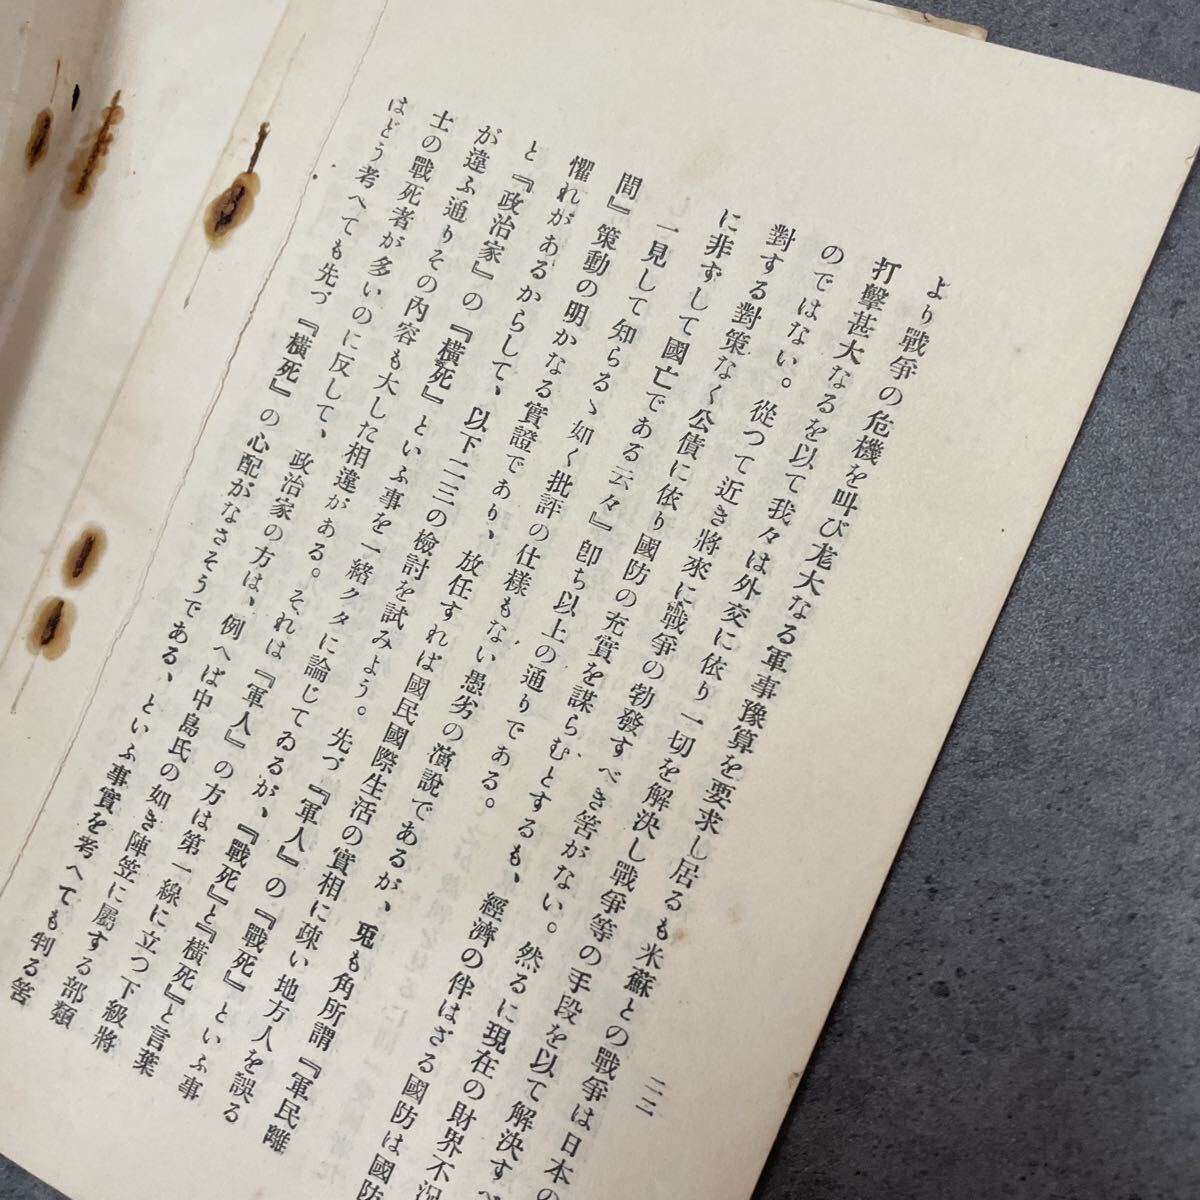 二二
より戰爭の危機を叫び尨大なる軍事豫算を要求し居るも米蘇との戰爭は日本の
打擊甚大なるを以て我々は外交に依り一切を解決し戰爭等の手段を以て解決すべ
のではない。從つて近き將來に戰爭の勃發すべき筈がない。然るに現在の財界不況
對する對策なく公債に依り國防の充實を謀らむとするも、經濟の伴はざる國防は國防
に非ずして國亡である云々』卽ち以上の通りである。
一見して知らるゝ如く批評の仕樣もない愚劣の演說であるが、兎も角所謂『軍民離
間』策動の明かなる實證であり、放任すれば國民國際生活の實相に疎い地方人を誤る
懼れがあるからして、以下二三の檢討を試みよう。先づ『軍人』の『戰死』といふ事
と『政治家』の『橫死』といふ事を一緒クタに論じてゐるが、『戰死』と『橫死』と言葉
が違ふ通りその內容も大した相違がある。それは『軍人』の方は第一線に立つ下級將
士の戰死者が多いのに反して、政治家の方は、例へば中島氏の如き陣笠に屬する部類
はどう考へても先づ『橫死』の心配がなさそうである、といふ事實を考へても判る筈